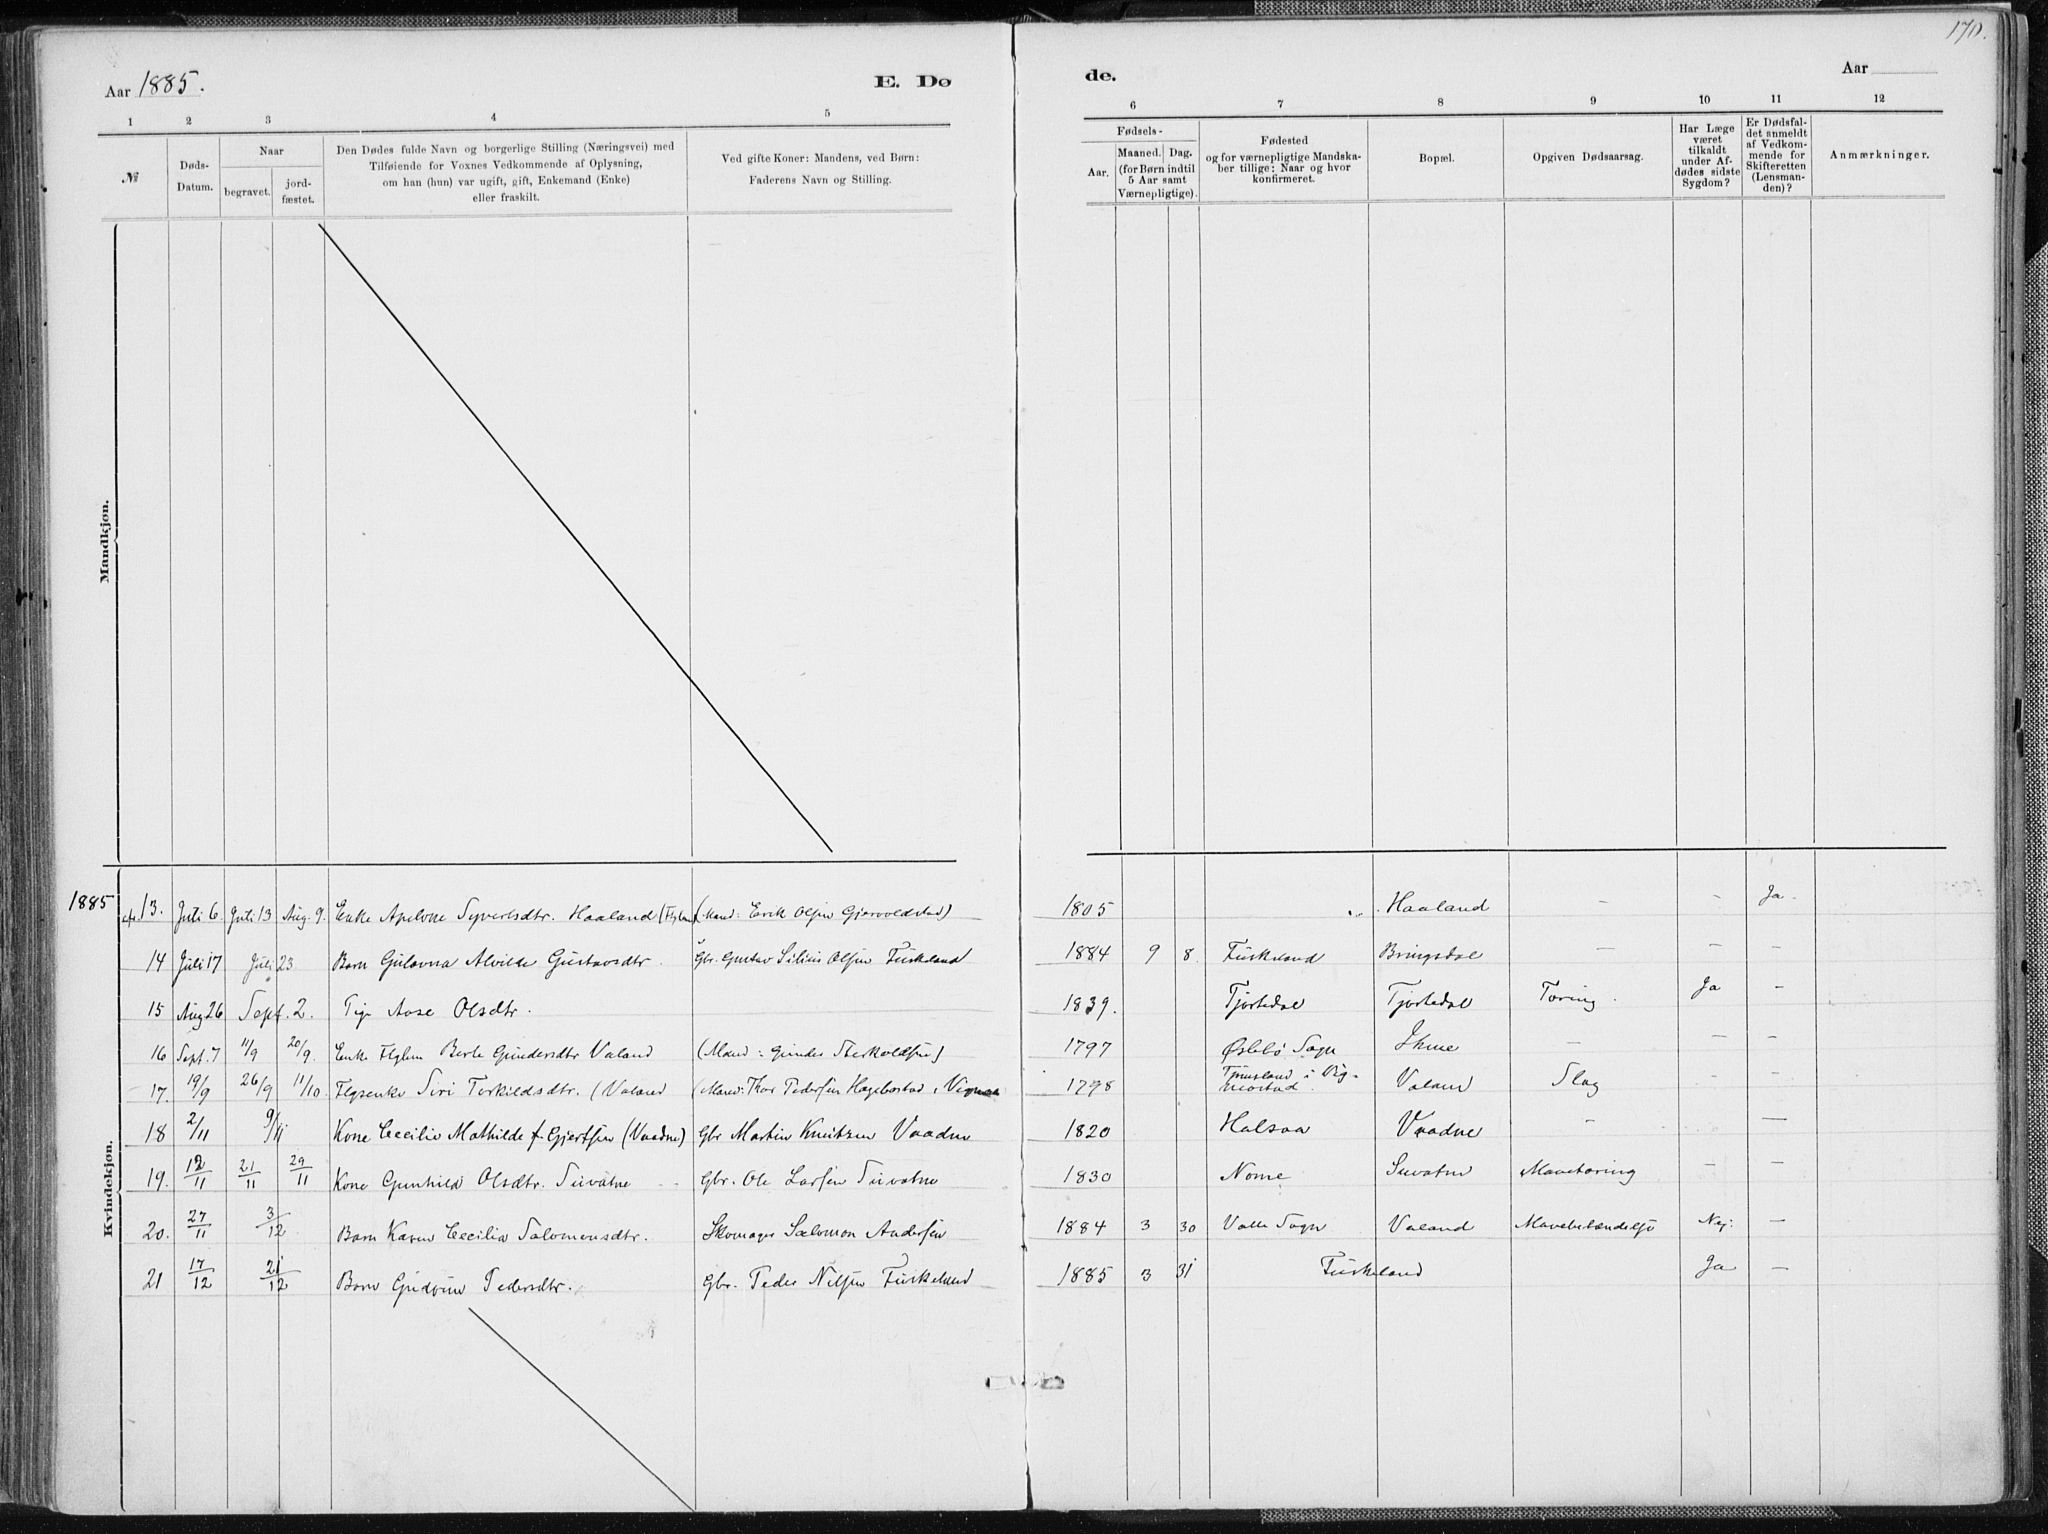 170.
Aar 1885.
E. Dø
de.
Aar
1 2 3 4 5
6 7 8 9 10 11 12
№
Døds-
Datum.
Naar
begravet.
jord-
fæstet.
Den Dødes fulde Navn og borgerlige Stilling (Næringsvei) med
Tilføiende for Voxnes Vedkommende af Oplysning,
om han (hun) var ugift, gift, Enkemand (Enke)
eller fraskilt.
Ved gifte Koner: Mandens, ved Børn:
Faderens Navn og Stilling.
Fødsels-
Aar.
Maaned. Dag.
(for Børn indtil
5 Aar samt
Værnepligtige).
Fødested
og for værnepligtige Mandska-
ber tillige: Naar og hvor
konfirmeret.
Bopæl.
Opgiven Dødsaarsag.
Har Læge
været
tilkaldt
under Af-
dødes sidste
Sygdom?
Er Dødsfal-
det anmeldt
af Vedkom-
mende for
Skifteretten
(Lensman-
den)?
Anmærkninger.
Mandkjøn.
Kvindekjøn.
1885 13. Juli 6. Juli 13 Aug. 9. Enke Apelone Syvertsdtr. Haaland (Mand: Erik Olsen Gjervoldstad) 1805 Haaland – – Ja –
14 Juli 17 Juli 23. Barn Gulovna Alvilde Gustavsdtr. Gbr. Gustav Silius Olsen Fuskeland 1884 9 8. Fuskeland Bringsdal – – –
15 Aug 26 Sept. 2. Pige Aase Olsdtr. 1839. Tjortedal Tjortedal Tæring. Ja –
16 Sept. 7 11/9 20/9. Enke Berte Gundersdtr Valand (Mand: Gunder 1797 Øslebø Sogn Ihme – – –
17. 19/9 26/9 11/10 Siri Torkildsdtr. (Valand (Mand: Thor Pedersen Hagebostad i 1798 i Vig-
mostad. Valand Slag – –
18 2/11 9/11 Kone Cecilie Mathilde f. Gjertsen (Vaadne) Gbr Martin Knutzen Vaadne 1820 Halsaa Vaadne – –
19. 12/11 21/11 29/11 Kone Gunhild Olsdtr. Suvatne Gbr. Ole Larsen Suvatne 1830 Nome Suvatne Mavetæring – –
20. 27/11 3/12 Barn Karen Cecilia Salomonsdtr. Skomager Salomon Andersen 1884 3 30 Valle Sogn Valand Mavebetændelse Nej. –
21 17/12 21/12 Barn Gudrun Pedersdtr. Gbr. Peder Nilsen Fuskeland 1885 3 31 Fuskeland Ja –